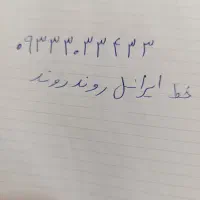 ۰۹۳۳۳۰۳۳۴۳۳
خط ایرانسل روند روند